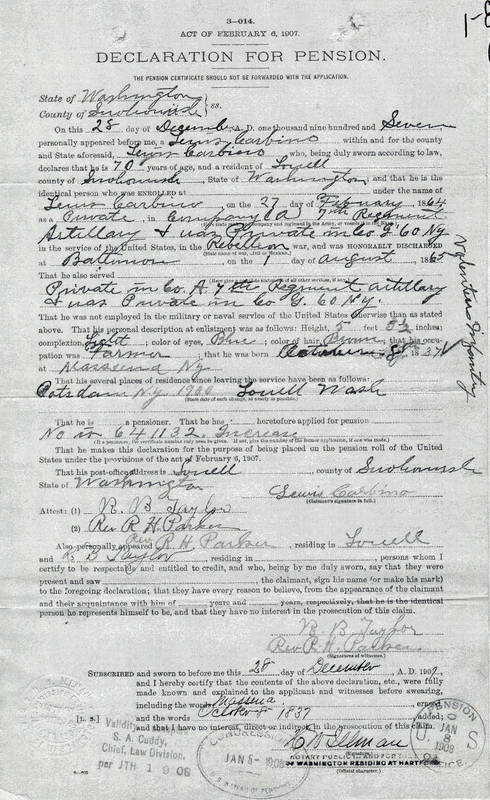 3—014.
ACT OF FEBRUARY 6, 1907.
DECLARATION FOR PENSION.
THE PENSION CERTIFICATE SHOULD NOT BE FORWARDED WITH THE APPLICATION.
State of Washington
County of Snohomish } ss.
On this 28 day of December, A. D. one thousand nine hundred and Seven
personally appeared before me, a Lewis Carbino within and for the county
and State aforesaid, Lewis Carbino who, being duly sworn according to law,
declares that he is 70 years of age, and a resident of Lowell
county of Snohomish, State of Washington; and that he is the
identical person who was ENROLLED at under the name of
Lewis Carbino, on the 27 day of February, 1864
as a Private, in Company A 7th Regment
Artillary & was Private in Co G. 60 Ny
in the service of the United States, in the Rebellion war, and was HONORABLY DISCHARGED
at Baltimore, on the 1 day of August, 1865
That he also served
Private in Co. A. 7th Regment artillary
& was Private in Co G. 60 Ny.
Volunteers Infantry
That he was not employed in the military or naval service of the United States otherwise than as stated
above. That his personal description at enlistment was as follows: Height, 5 feet 8½ inches;
complexion, Light; color of eyes, Blue; color of hair, Brown; that his occu-
pation was Farmer; that he was born October 8, 1837
at Massena Ny
That his several places of residence since leaving the service have been as follows:
Potsdam N.y. 1900 Lowell Wash
That he is a pensioner. That he has heretofore applied for pension
No is 641132. Increase
That he makes this declaration for the purpose of being placed on the pension roll of the United
States under the provisions of the act of February 6, 1907.
That his post-office address is Lowell, county of Snohomish
State of Washington
Lewis Carbino
(Claimant's signature in full.)
Attest: (1) R. B Taylor
(2) Rev R H Parker
Also personally appeared Rev R H. Parker, residing in Lowell
and R B Taylor, residing in, persons whom I
certify to be respectable and entitled to credit, and who, being by me duly sworn, say that they were
present and saw, the claimant, sign his name (or make his mark)
to the foregoing declaration; that they have every reason to believe, from the appearance of the claimant
and their acquaintance with him of years and years, respectively, that he is the identical
person he represents himself to be, and that they have no interest in the prosecution of this claim.
R B Taylor
Rev R H. Parker
(Signatures of witnesses.)
SUBSCRIBED and sworn to before me this 28 day of December, A. D. 1907,
and I hereby certify that the contents of the above declaration, etc., were fully
made known and explained to the applicant and witnesses before swearing,
including the words Massena
and the words October 8 1837 added;
and that I have no interest, direct or indirect, in the prosecution of this claim.
[L. S.]
Validity
S. A. Cuddy,
Chief, Law Division,
per JTH 1 9 08
JAN 6 - 1908
PENSION
JAN 8 1908
OFFICE
U S
NOTARY PUBLIC IN AND FOR
OF WASHINGTON RESIDING AT HARTFORD
(Official character.)